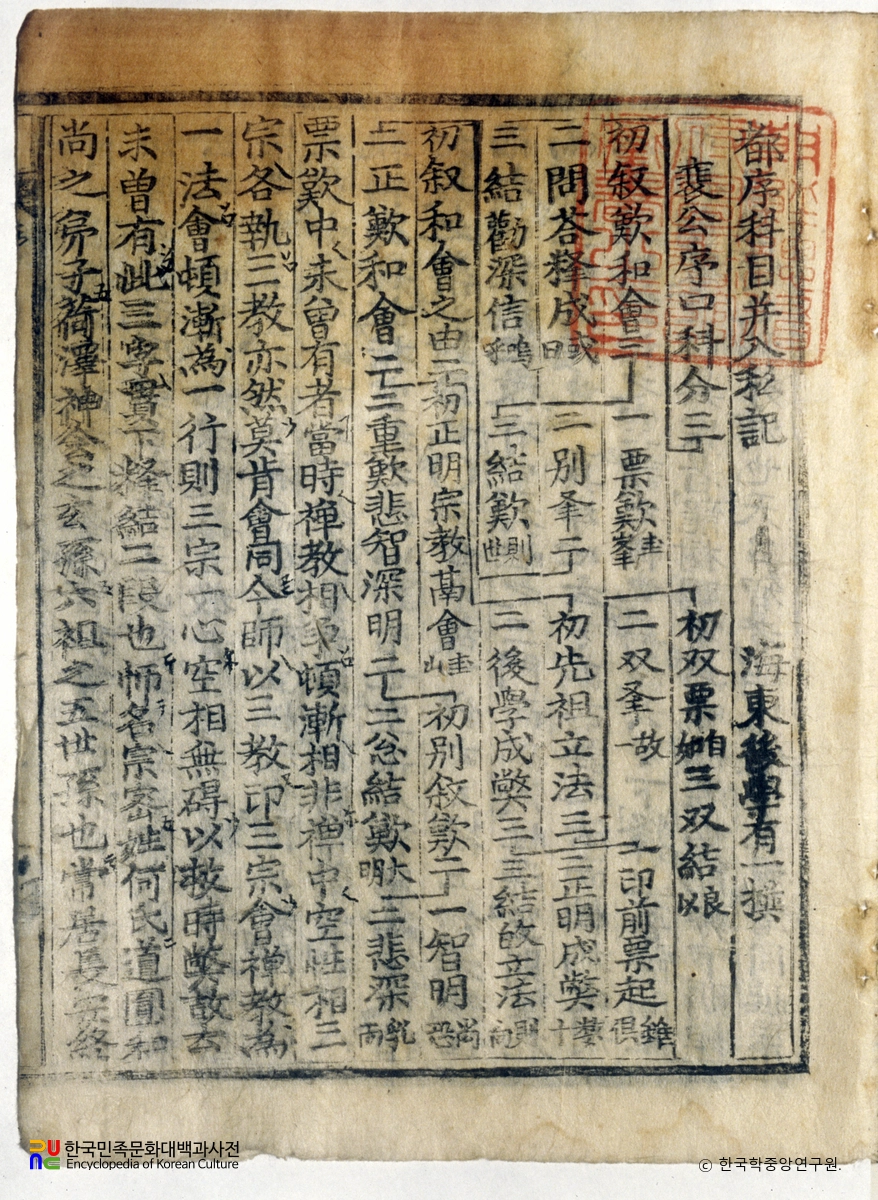 都序科目并入私記 海東後學有一撰
裴公序口科分三 初双票如自三双結娘以
初叙歎和會三 一票歎峯圭 二双夆一故 一印前票起俱錐
二問答释成曰或 二別夆二 初先祖立法三 二正明成弊十
三結勸深信呼嗚 三結歎世則 二後學成弊三 三結的立法向則
初叙和會之由二 初正明宗教啇會山圭 初別叙歎二 一智明恐尚
二正歎和會二 二重歎悲智深明二 二总結歎明大 二悲深而乳
票歎中未曾有者當時禅教相争頓漸相非禅中空性相三
宗各執三教亦然莫肯會同今師以三教印三宗會禅教為
一法會頓漸為一行則三宗一心空相無碍以救時弊故云
未曾有此三字實下释結二段也师名宗密姓何氏道圓和
尚之弟子荷澤神會之玄孫六祖之五世孫也常居長安終
한국민족문화대백과사전
Encyclopedia of Korean Culture
© 한국학중앙연구원.